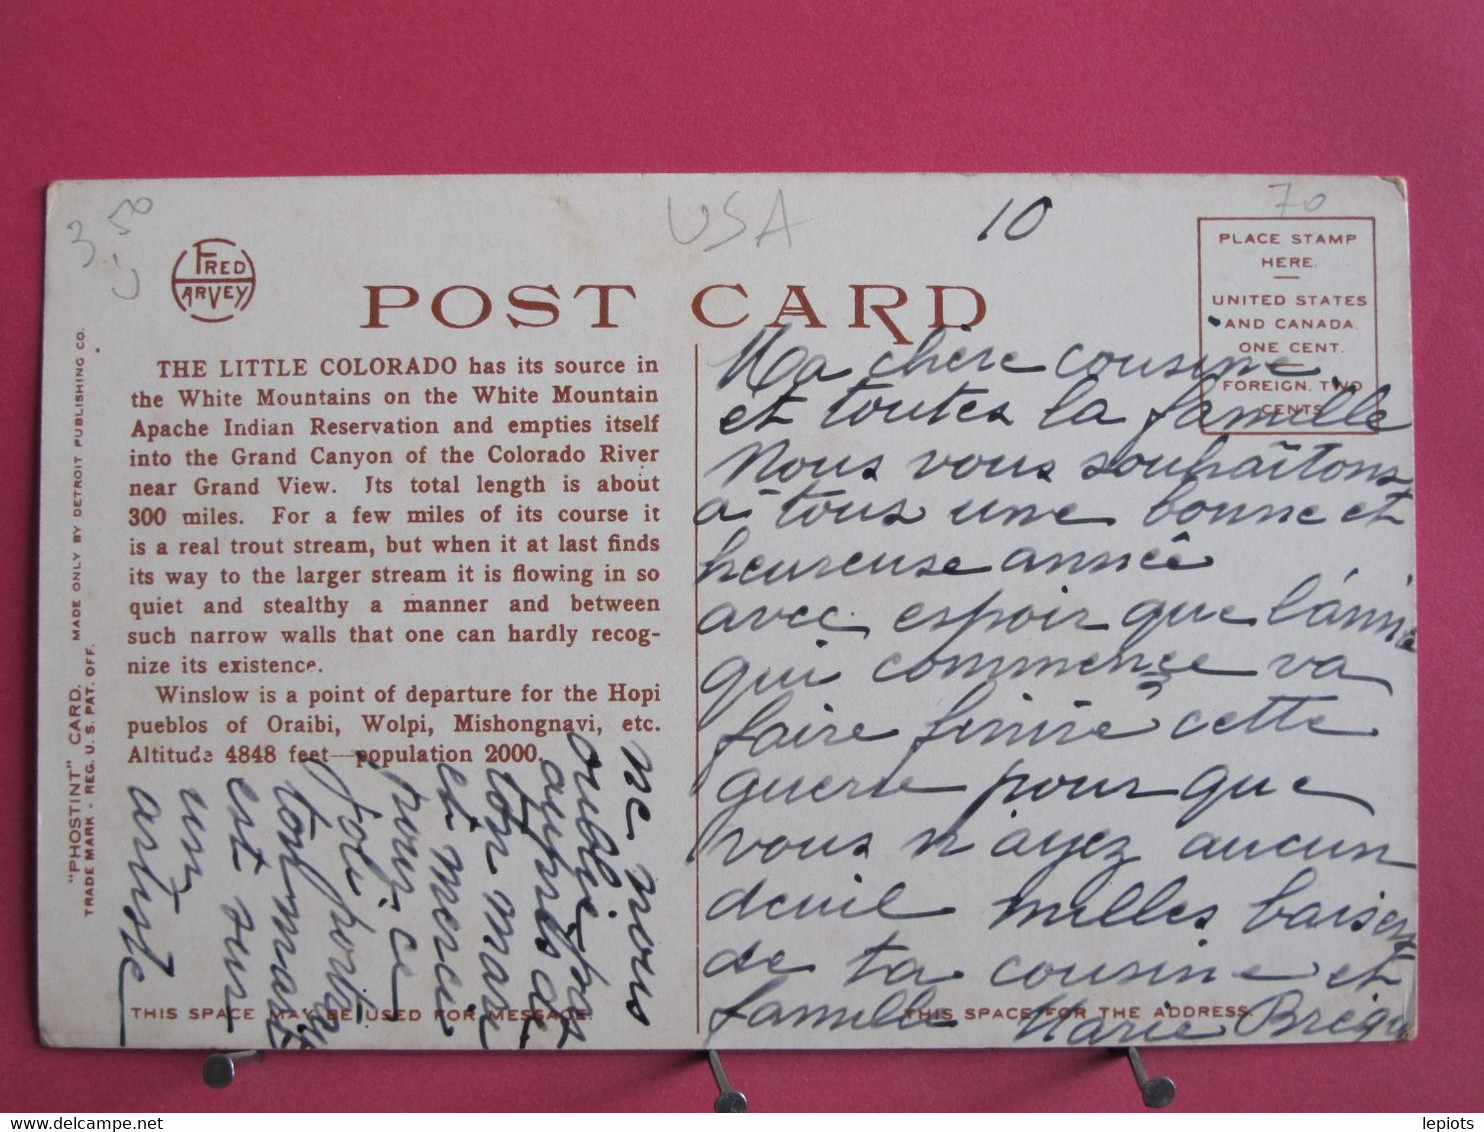 3.50
USA
10
70
FRED HARVEY
POST CARD
PLACE STAMP
HERE.
UNITED STATES
AND CANADA.
ONE CENT.
FOREIGN, TWO
CENTS
"PHOSTINT" CARD. MADE ONLY BY DETROIT PUBLISHING CO.
TRADE MARK - REG. U. S. PAT. OFF.
THE LITTLE COLORADO has its source in
the White Mountains on the White Mountain
Apache Indian Reservation and empties itself
into the Grand Canyon of the Colorado River
near Grand View. Its total length is about
300 miles. For a few miles of its course it
is a real trout stream, but when it at last finds
its way to the larger stream it is flowing in so
quiet and stealthy a manner and between
such narrow walls that one can hardly recog-
nize its existence.
Winslow is a point of departure for the Hopi
pueblos of Oraibi, Wolpi, Mishongnavi, etc.
Altitude 4848 feet—population 2000.
THIS SPACE MAY BE USED FOR MESSAGE.
THIS SPACE FOR THE ADDRESS.
Ma chère cousine
et toutes la famille
Nous vous souhaîtons
à tous une bonne et
heureuse année
avec espoir que l'année
qui commence va
faire finire cette
guerre pour que
vous n'ayez aucun
deuil milles baisers
de ta cousine et
famille Marie
ne nous
oublie pas
auprès de
ton mari
et merci
pour ce
joli portrait
ton mari
est un
artiste
123-carte.net
lepiots